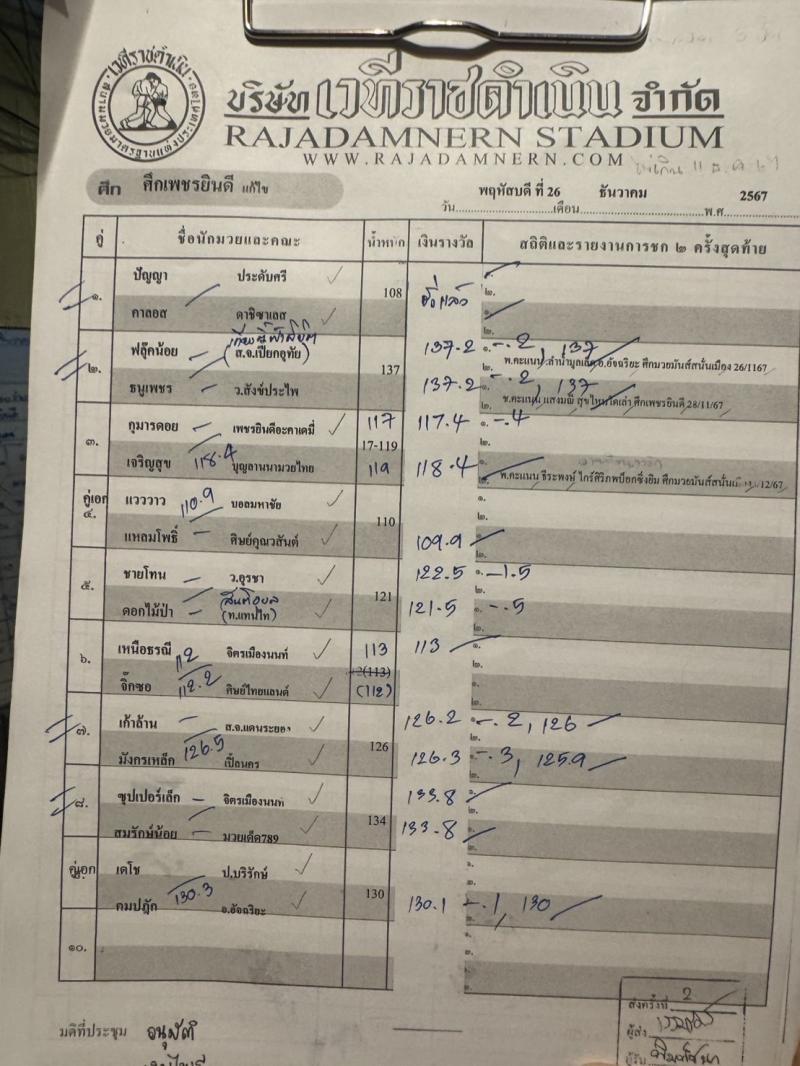 เวทีราชดำเนิน
บริษัท เวทีราชดำเนิน จำกัด
RAJADAMNERN STADIUM
WWW.RAJADAMNERN.COM
ศึก ศึกเพชรยินดี แก้ไข
พฤหัสบดี ที่ 26 ธันวาคม 2567
วัน เดือน พ.ศ.
คู่ ชื่อนักมวยและคณะ น้ำหนัก เงินรางวัล สถิติและรายงานการชก ๒ ครั้งสุดท้าย
ปัญญา ประดับศรี
๑. 108 ชั่งแล้ว
คาลอส ดาซิซาเลส
ฟลุ๊คน้อย (ส.จ.เปี๊ยกอุทัย) 137.2 -.2, 137
๒. 137 พ.คะแนน ลำน้ำมูลเล็ก อ.อัจฉริยะ ศึกมวยมันส์สนั่นเมือง 26/1167
ธนูเพชร ว.สังข์ประไพ 137.2 -.2, 137
ช.คะแนน แสงมณี ศึกเพชรยินดี 28/11/67
กุมารดอย เพชรยินดีอะคาเดมี่ 117 117.4 -.4
๓. 17-119
เจริญสุข 118.4 บุญลานนามวยไทย 119 118.4
พ.คะแนน ธีระพงษ์ ศึกมวยมันส์สนั่นเมือง 12/67
คู่เอก แวววาว 110.9 บอลมหาชัย
๔. 110
แหลมโพธิ์ ศิษย์คุณวสันต์ 109.9
ชายโทน ว.อุรชา 122.5 -1.5
๕. 121
ดอกไม้ป่า (ท.แทนไท) 121.5 -.5
เหนือธรณี 112 จิตรเมืองนนท์ 113 113
๖. (113)
จิ๊กซอ 112.2 ศิษย์ไทยแลนด์ (112)
เก้าล้าน ส.จ.แดนระยอง 126.2 -.2, 126
๗. 126
มังกรเหล็ก 126.5 เป้นคร 126.3 -.3, 125.9
ซุปเปอร์เล็ก จิตรเมืองนนท์ 133.8
๘. 134
สมรักษ์น้อย มวยเด็ด789 133.8
คู่เอก เดโช ป.บริรักษ์
130
คมปฎัก 130.3 อ.อัจฉริยะ 130.1 -.1, 130
๑๐.
มติที่ประชุม อนุมัติ
ส่งครั้งที่ 2
ผู้ส่ง
ผู้รับ